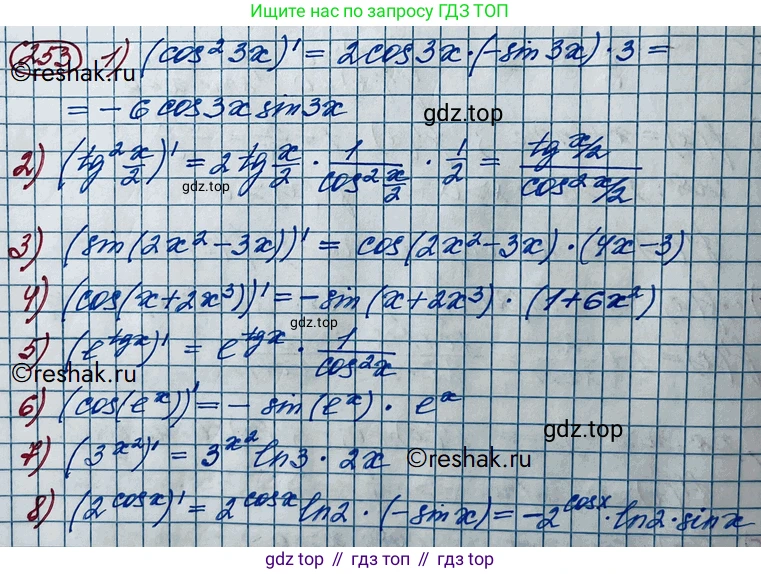 Ищите нас по запросу ГДЗ ТОП
253 1) (cos² 3x)' = 2cos3x·(-sin3x)·3 =
©reshak.ru
= -6cos3x sin3x
gdz.top
2) (tg² x/2)' = 2 tg x/2 · 1/cos² x/2 · 1/2 = tg x/2 / cos² x/2
gdz.top
3) (sin(2x²-3x))' = cos(2x²-3x)·(4x-3)
4) (cos(x+2x³))' = -sin(x+2x³)·(1+6x²)
gdz.top
5) (e^tgx)' = e^tgx · 1/cos²x
©reshak.ru
6) (cos(e^x))' = - sin(e^x) · e^x
gdz.top
7) (3^x²)' = 3^x² ln3 · 2x
©reshak.ru
8) (2^cosx)' = 2^cosx ln2 · (-sinx) = -2^cosx · ln2 · sinx
gdz.top // гдз.топ // gdz.top